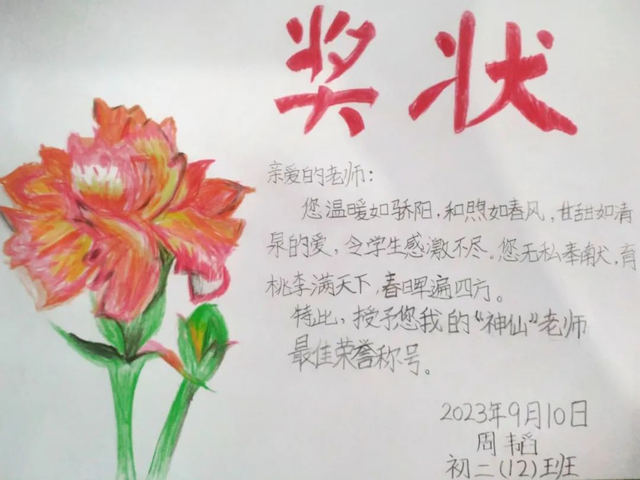 奖状
亲爱的老师:
您温暖如骄阳,和煦如春风,甘甜如清
泉的爱,令学生感激不尽。您无私奉献,育
桃李满天下,春晖遍四方。
特此,授予您我的“神仙”老师
最佳荣誉称号。
2023年9月10日
周韬
初二(12)班